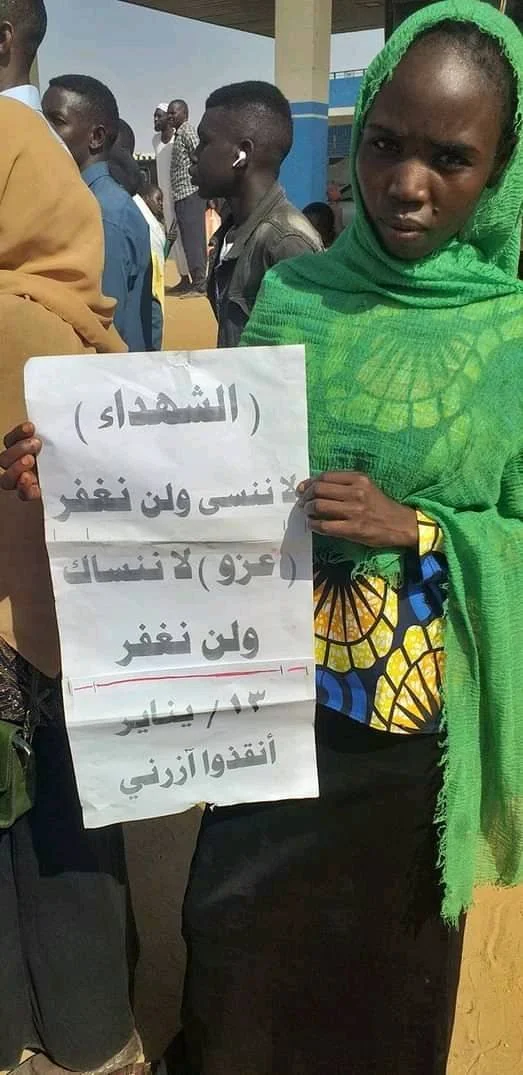 ( الشهداء )
لا ننسى ولن نغفر
(عزو) لا ننساك
ولن نغفر
١٣ / يناير
أنقذوا آزرني